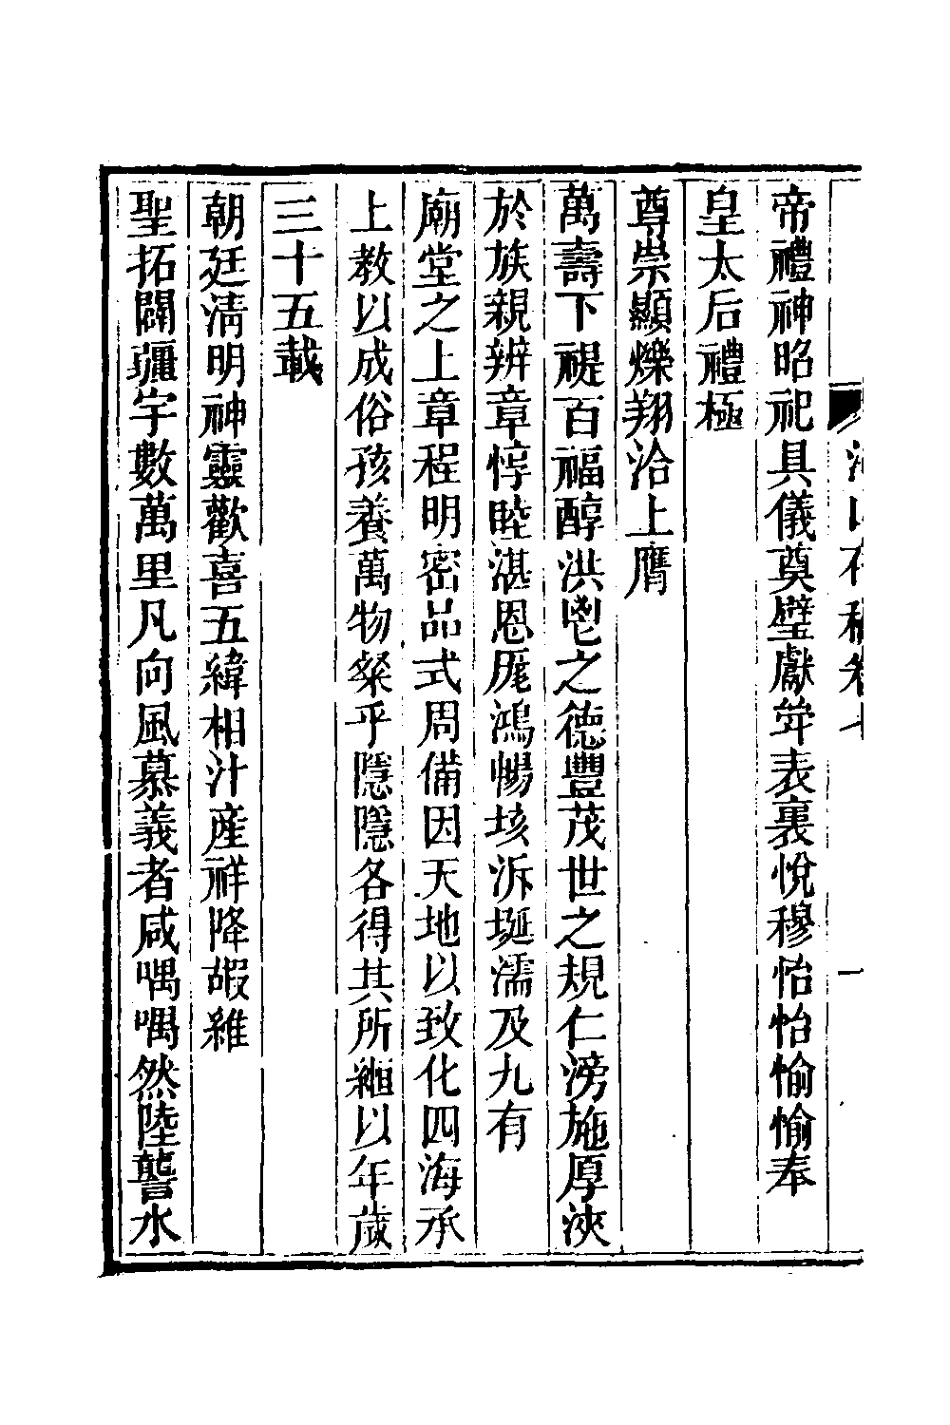 海山存稿卷七 一
帝禮神昭祀具儀奠璧獻斚表裏悅穆怡怡愉愉奉
皇太后禮極
尊崇顯爍翔洽上膺
萬壽下禔百福醇洪鬯之德豐茂世之規仁滂施厚浹
於族親辨章惇睦湛恩厖鴻暢垓泝埏濡及九有
廟堂之上章程明密品式周備因天地以致化四海承
上教以成俗孩養萬物粲乎隱隱各得其所緬以年歲
三十五載
朝廷清明神靈歡喜五緯相汁產祥降嘏維
聖拓闢疆宇數萬里凡向風慕義者咸喁喁然陸讋水